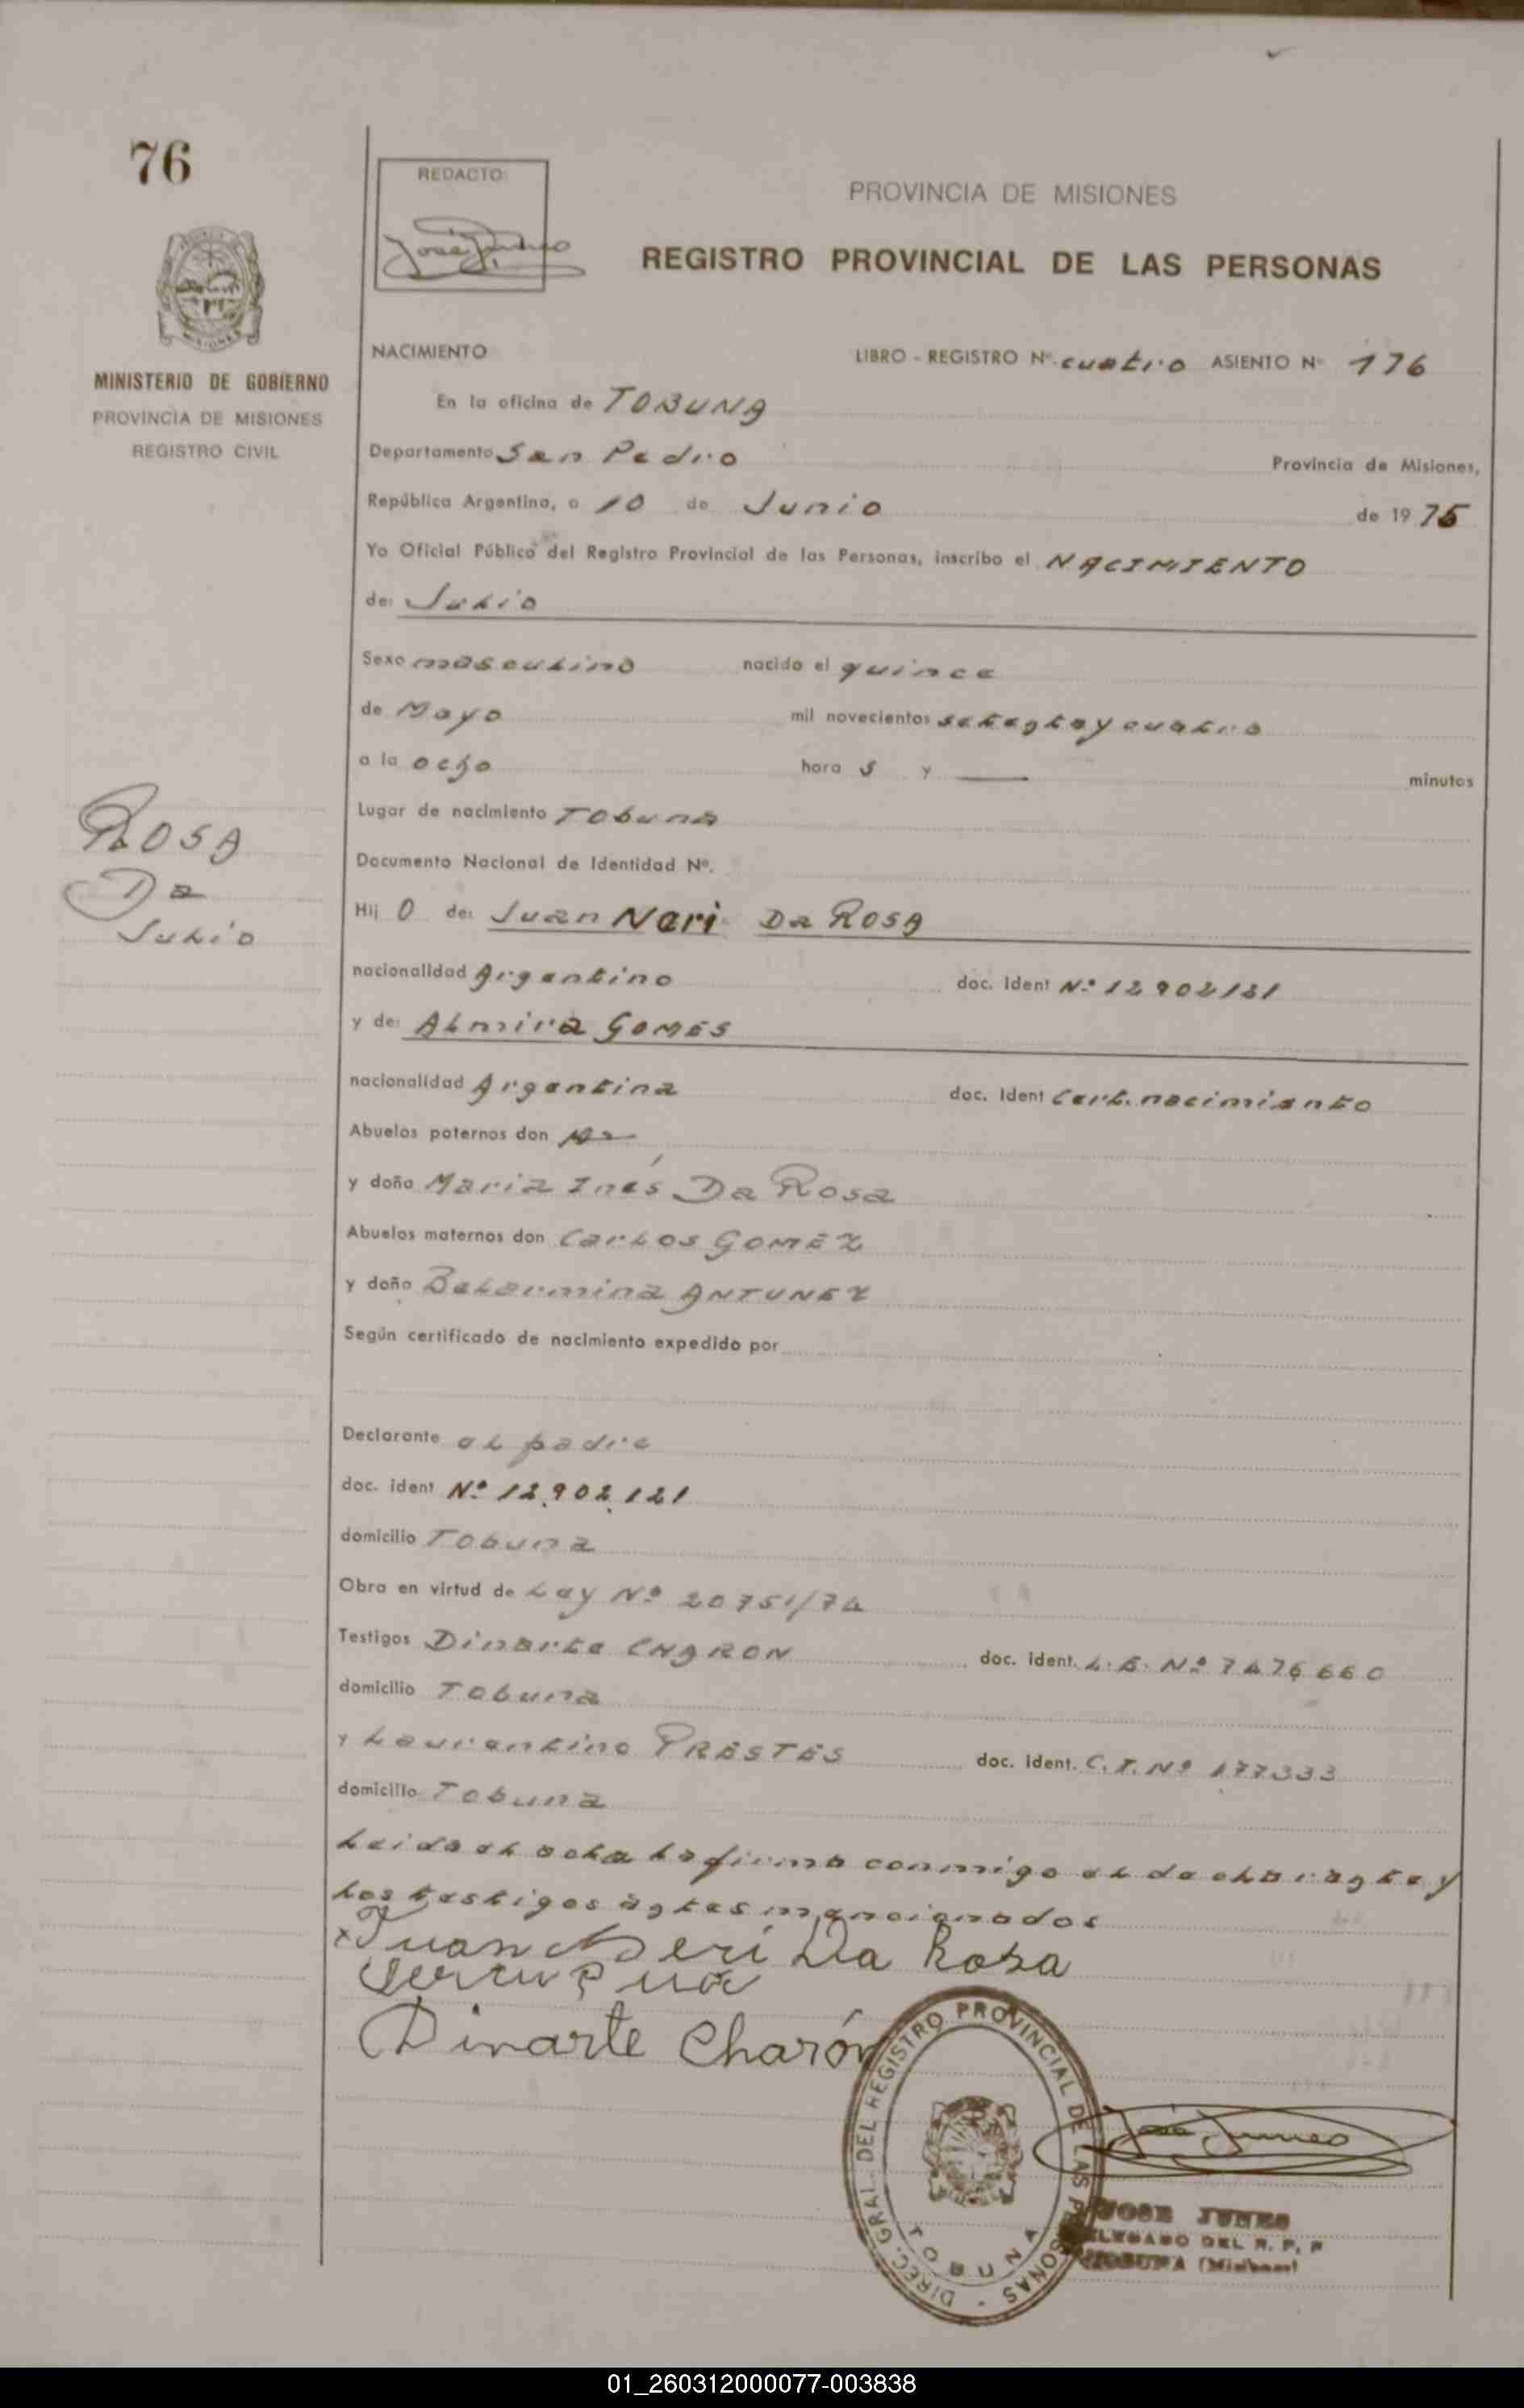 76
REDACTO:
PROVINCIA DE MISIONES
REGISTRO PROVINCIAL DE LAS PERSONAS
MISIONES
MINISTERIO DE GOBIERNO
PROVINCIA DE MISIONES
REGISTRO CIVIL
NACIMIENTO LIBRO - REGISTRO Nº cuatro ASIENTO Nº 176
En la oficina de TOBUNA
Departamento San Pedro Provincia de Misiones,
República Argentina, a 10 de Junio de 1975
Yo Oficial Público del Registro Provincial de las Personas, inscribo el NACIMIENTO
de: Julio
Sexo masculino nacido el quince
de Mayo mil novecientos setenta y cuatro
a la ocho hora s y — minutos
Lugar de nacimiento Tobuna
Documento Nacional de Identidad Nº.
ROSA
Da
Julio
Hij o de: Juan Neri Da ROSA
nacionalidad Argentino doc. Ident Nº 12902121
y de: Almira GOMES
nacionalidad Argentina doc. Ident Cert. nacimiento
Abuelos paternos don
y doña Maria Inés Da Rosa
Abuelos maternos don Carlos GOMEZ
y doña Belarmina ANTUNEZ
Según certificado de nacimiento expedido por
Declarante el padre
doc. ident Nº 12.902.121
domicilio Tobuna
Obra en virtud de Ley Nº 20751/74
Testigos Dinarte CHARON doc. ident. L.E. Nº 7476660
domicilio Tobuna
y Laurentino PRESTES doc. ident. C.I. Nº 177333
domicilio Tobuna
Leida el acta la firma conmigo el declarante y
los testigos antes mencionados
x Juan Neri Da Rosa
Dinarte Charón
DIREC. GRAL. DEL REGISTRO PROVINCIAL DE LAS PERSONAS -
TOBUNA
JOSE JUNES
DELEGADO DEL R. P. P
TOBUNA (Misiones)
01_260312000077-003838